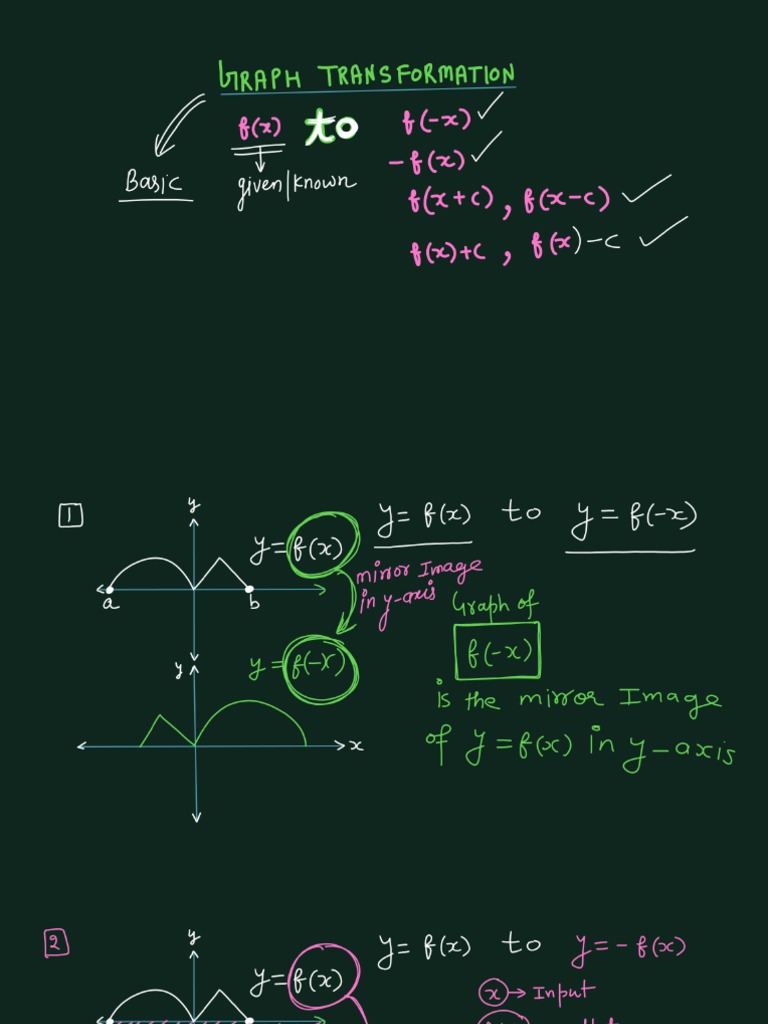 GRAPH TRANSFORMATION
f(x) to f(-x)
Basic given/known -f(x)
f(x+c), f(x-c)
f(x)+c, f(x)-c
1
y
y = f(x) y = f(x) to y = f(-x)
a b
mirror Image
in y-axis
Graph of
y y = f(-x) f(-x)
is the mirror Image
x of y = f(x) in y-axis
2
y
y = f(x) to y = - f(x)
y = f(x)
x → Input